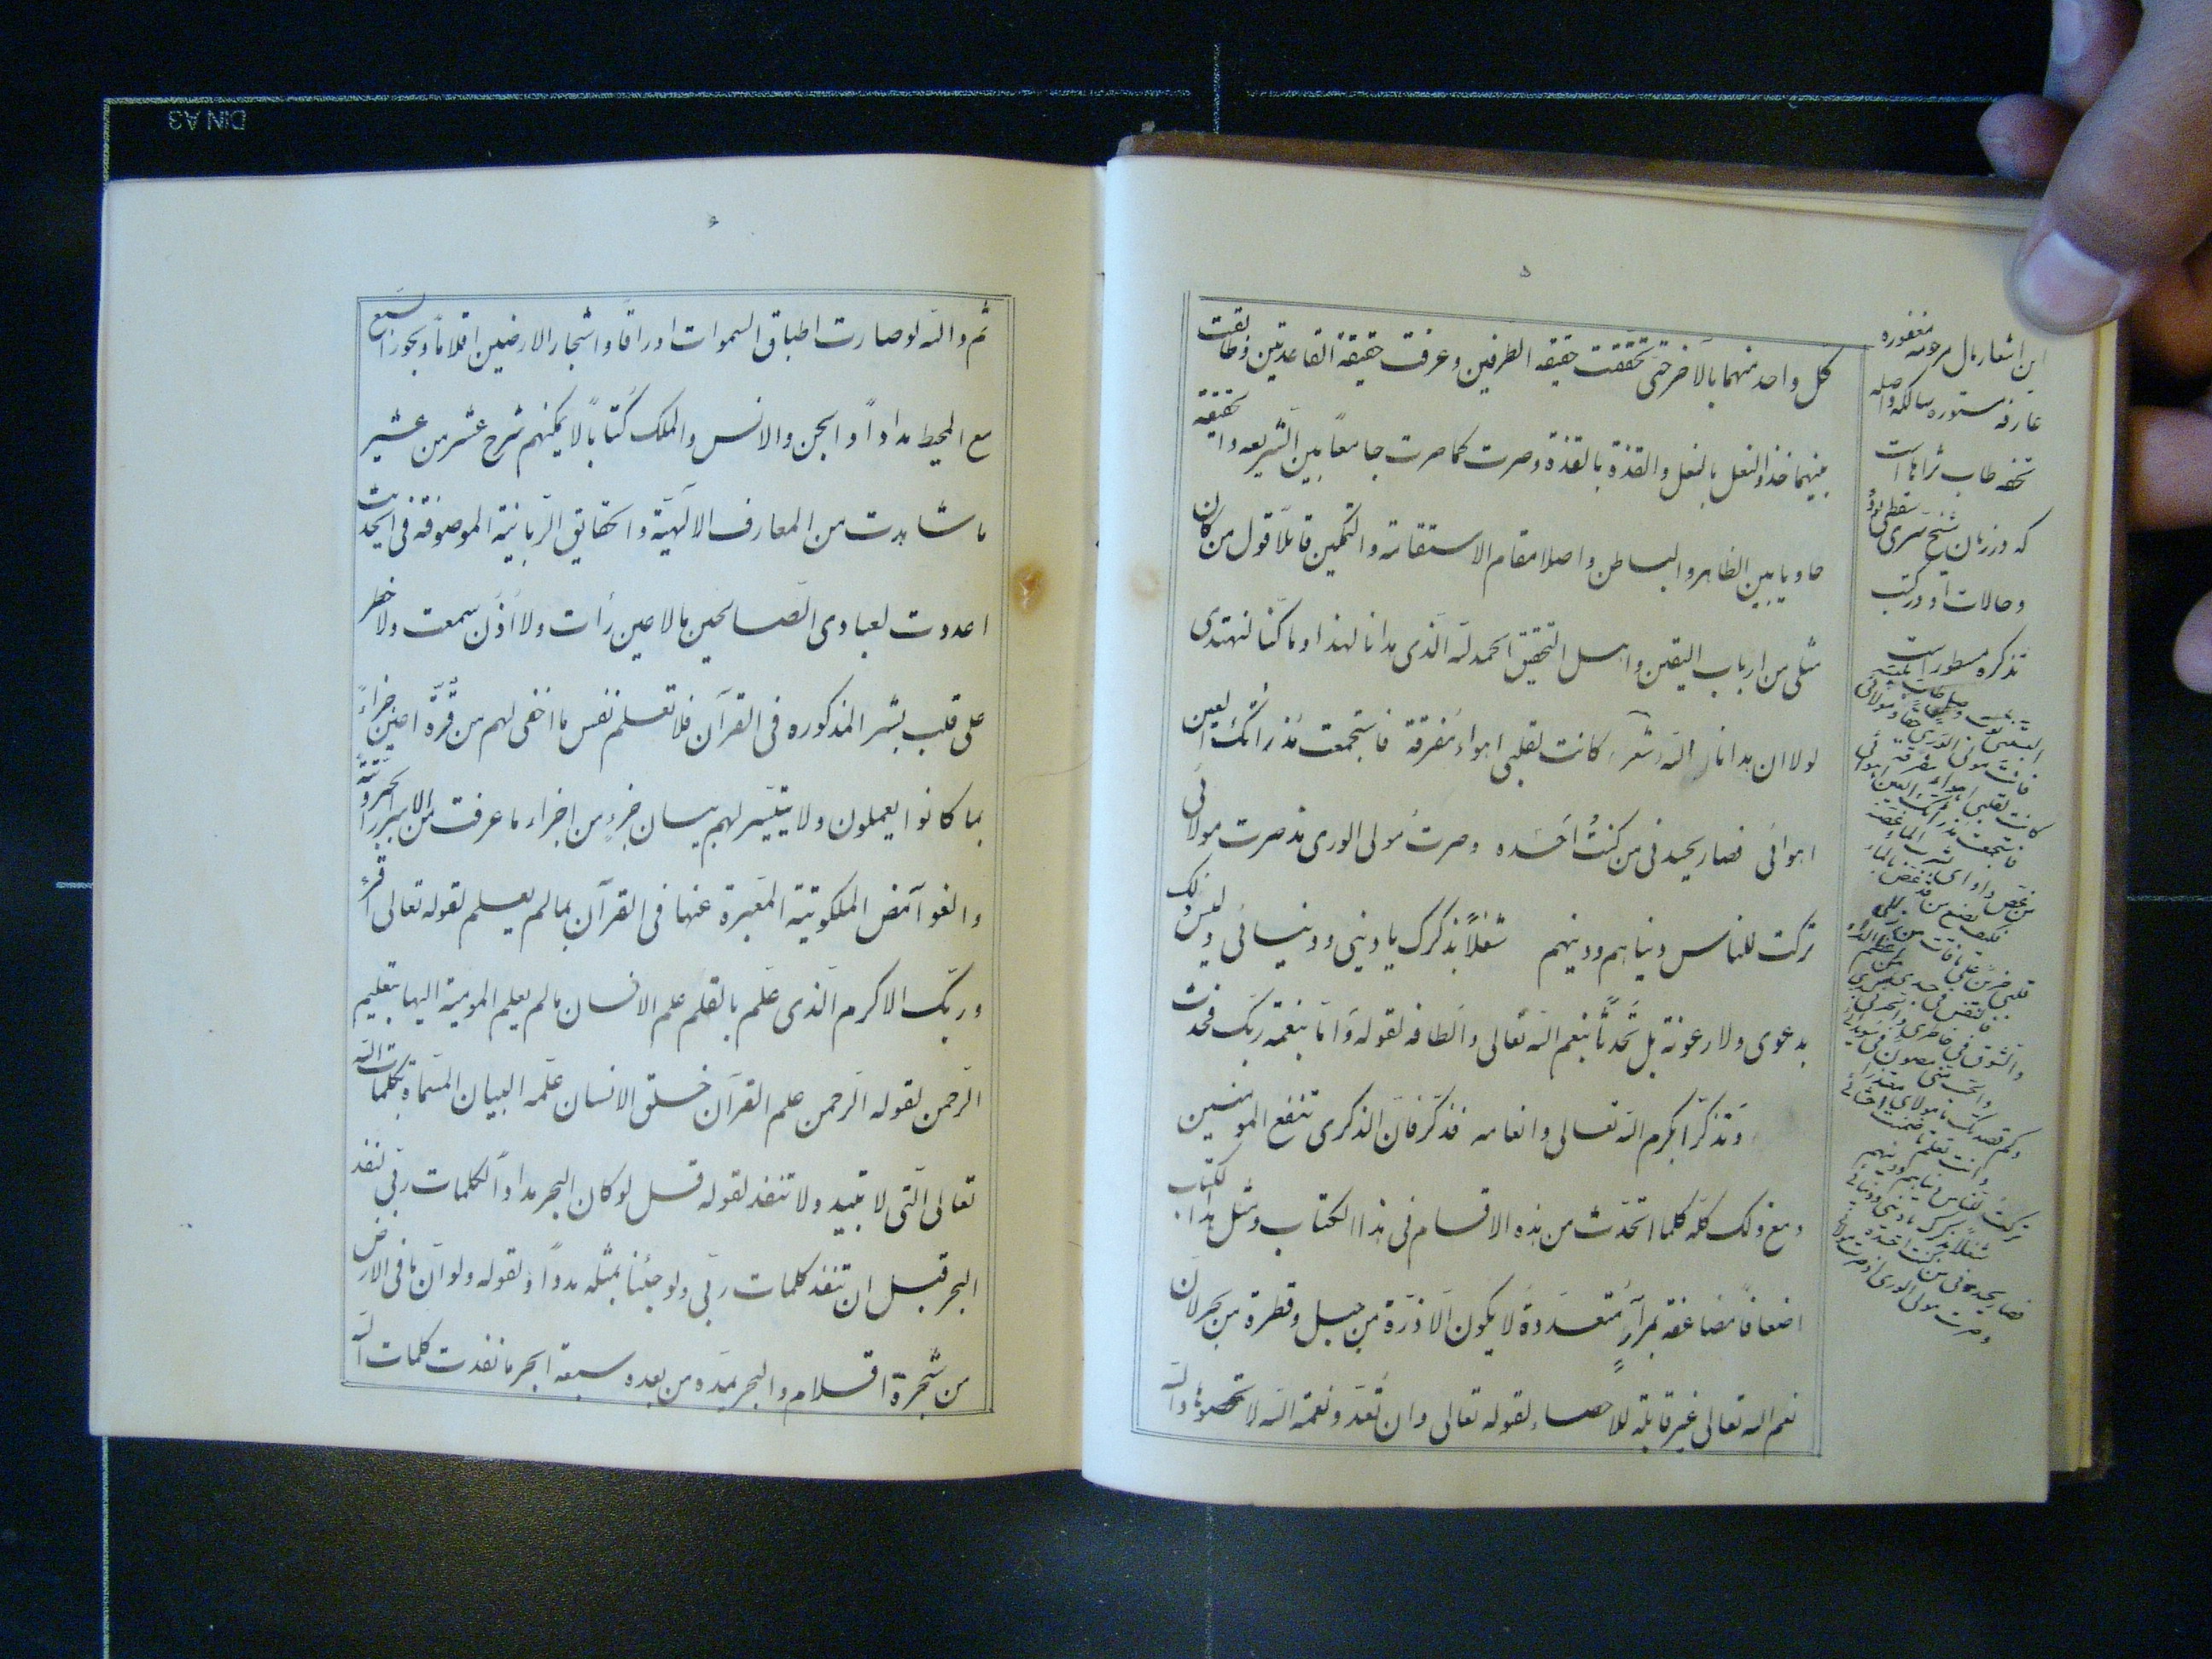 ۵
كل واحد منهما بالآخر حتى تحققت حقيقة الطرفين وعرفت حقيقة القاعدتين وطابقت
بينهما حذو النعل بالنعل والقذة بالقذة وصرت كما صرت جامعاً بين الشريعه والحقيقة
حاويا بين الظاهر والباطن واصلا مقام الاستقامة والتمكين قائلاً قول من كان
مثلى من ارباب اليقين واهل التحقيق الحمد لله الذى هدانا لهذا وما كنا لنهتدى
لولا ان هدانا الله شعر كانت لقلبى اهواء مفرقة فاستجمعت مذ راتك العين
اهوائى فصار يحسدنى من كنتُ احسده وصرتُ مولى الورى مذ صرت مولائى
تركت للناس دنياهم ودينهم شغلاً بذكرك يا دينى ودنيائى وليس ذلك
بدعوى ولا رعونة بل تحدثاً بنعم الله تعالى والطافه لقوله وامّا بنعمة ربك فحدث
وتذكراً بكرم الله تعالى وانعامه فذكر فان الذكرى تنفع المومنين
ومع ذلك كله كلما اتحدث من هذه الاقسام فى هذا الكتاب ومثل هذا الكتاب
اضعافاً مضاعفة بمرارٍ متعددة لا يكون الا ذرة من جبل وقطرة من بحر لان
نعم الله تعالى غير قابلة للاحصاء لقوله تعالى وان تعدوا نعمة الله لا تحصوها والله
اين اشعار مال مرحومه مغفوره
عارفه مستوره سالكه واصله
تحفه طاب ثراها است
كه در زمان شيخ سرى سقطى بود
وحالات او در كتب
تذكره مسطور است
كانت لقلبى اهواء مفرقة
فاستجمعت مذ راتك العين اهوائى
تركت للناس دنياهم ودينهم
شغلاً بذكرك يا دينى ودنيائى
فصار يحسدنى من كنت احسده
وصرت مولى الورى اذ صرت مولائى
۶
ثم والله لو صارت اطباق السموات اوراقاً واشجار الارضين اقلاماً وبحورا لسبع
مع المحيط مداداً والجن والانس والملك كُتّاباً لا يمكنهم شرح عشر من عشير
ما شاهدت من المعارف الالهيّة والحقايق الربانية الموصوفة فى الحديث
اعددت لعبادى الصالحين ما لا عين رأت ولا اذن سمعت ولا خطر
على قلب بشر المذكوره فى القرآن فلا تعلم نفس ما اخفى لهم من قرّة اعين جزاءً
بما كانوا يعملون ولا يتيسر لهم بيان جزءٍ من اجزاء ما عرفت من الاسرار الجبروتية
والغوامض الملكوتية المعبرة عنها فى القرآن بما لم يعلم لقوله تعالى اقرء
وربك الاكرم الذى علم بالقلم علم الانسان ما لم يعلم المومية اليها بتعليم
الرحمن لقوله الرحمن علم القرآن خلق الانسان علّمه البيان المسماة بكلمات الله
تعالى التى لا تبيد ولا تنفد لقوله قل لو كان البحر مداداً لكلمات ربى لنفد
البحر قبل ان تنفد كلمات ربى ولو جئنا بمثله مدداً ولقوله ولو ان ما فى الارض
من شجرة اقلام والبحر يمده من بعده سبعة ابحر ما نفدت كلمات الله